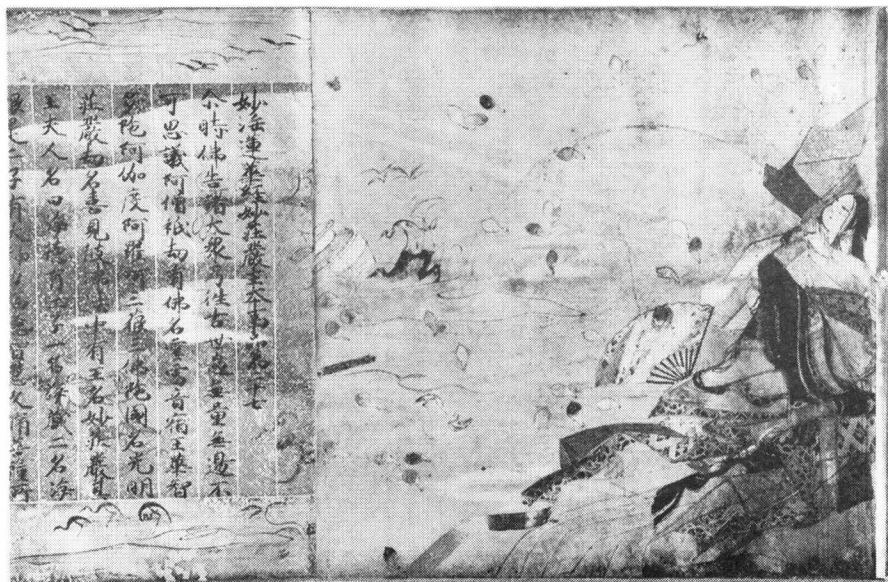 妙法蓮華經妙莊嚴王本事品第二十七
尒時佛告諸大衆乃往古世過無量無邊不
可思議阿僧祇劫有佛名雲雷音宿王華智
多陀阿伽度阿羅訶三藐三佛陀國名光明
莊嚴劫名喜見彼佛法中有王名妙莊嚴其
王夫人名曰淨德有二子一名淨藏二名淨
眼是二子有福德智慧久脩菩薩所